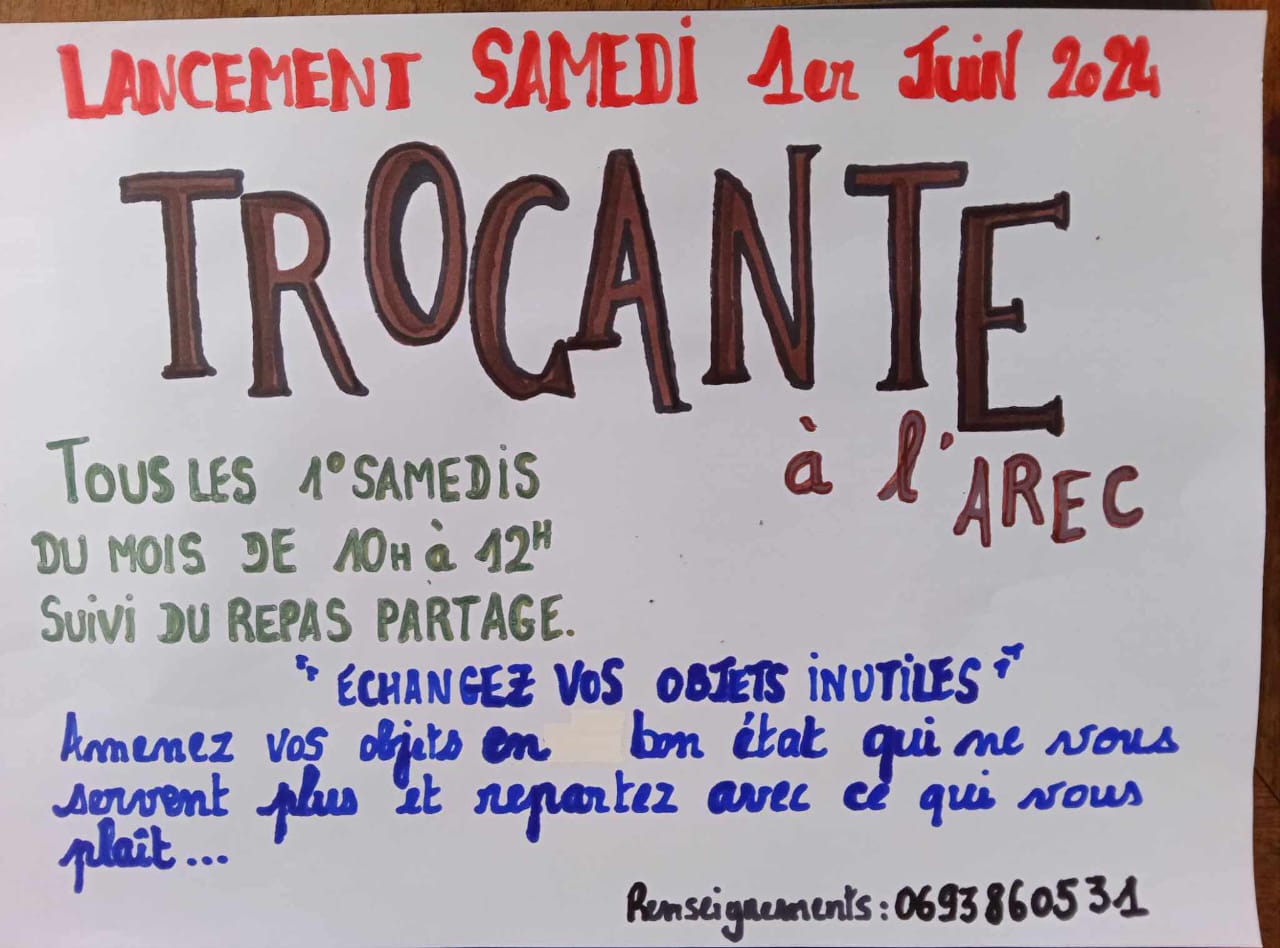 LANCEMENT SAMEDI 1er JUIN 2024
TROCANTE
à l'AREC
TOUS LES 1° SAMEDIS
DU MOIS DE 10H à 12H
SUIVI DU REPAS PARTAGE.
"ÉCHANGEZ VOS OBJETS INUTILES"
Amenez vos objets en bon état qui ne vous
servent plus et repartez avec ce qui vous
plaît...
Renseignements : 0693860531